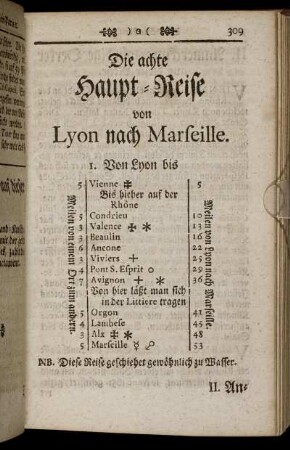 )o( 309
Die achte
Haupt-Reise
von
Lyon nach Marseille.
1. Von Lyon bis
5 Vienne ⸸ 5
Bis hieher auf der
Rhône
5 Condrieu 10
3 Valence ✠ * 13
3 Beaulin 16
6 Ancone 22
3 Viviers + 25
4 Pont S. Esprit o
7 Avignon + * 36
Von hier läßt man sich
in der Littiere tragen
5 Orgon 41
4 Lambese 45
3 Aix ⸸ * 48
5 Marseille ☿ ☍ 53
Meilen von einem Ort zum andern.
Meilen von Lyon nach Marseille.
NB. Diese Reise geschiehet gewöhnlich zu Wasser.
II. An-